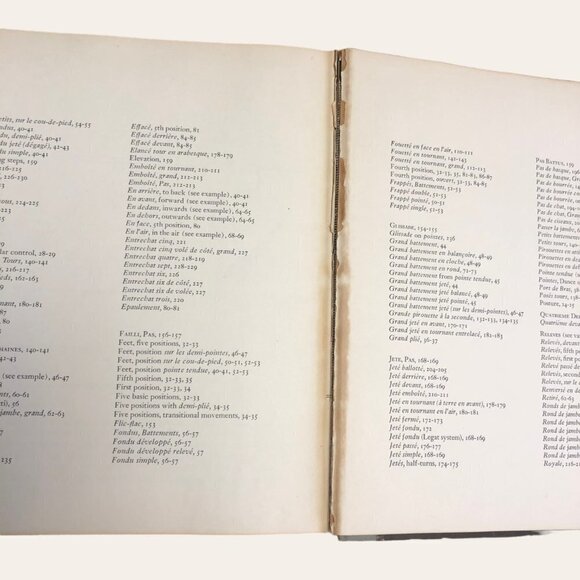 etits, sur le cou-de-pied, 54-55
ndus, 40-41
du, demi-plié, 40-41
du jeté (dégagé), 42-43
du simple, 40-41
ng steps, 159
-225
, 226-230
-23
ous, 224-225
-231
lar control, 28-29
Tours, 140-141
, 216-217
ieds, 162-163
-217
nant, 180-181
87
, 80
AINES, 140-141
2-43
(see example), 46-47
ents, 60-61
ambe, grand, 62-63
57
235
Effacé, 5th position, 81
Effacé derrière, 84-85
Effacé devant, 84-85
Elancé tour en arabesque, 178-179
Elevation, 159
Emboîté en tournant, 211-213
Emboîté, grand, 211-213
Emboîté, Pas, 211-213
En arrière, to back (see example), 40-41
En avant, forward (see example), 40-41
En dedans, inwards (see example), 64-65
En dehors, outwards (see example), 64-65
En face, 5th position, 80
En l'air, in the air (see example), 68-69
Entrechat cinq, 221
Entrechat cinq volé de côté, grand, 227
Entrechat quatre, 218-219
Entrechat sept, 228-229
Entrechat six, 226
Entrechat six de côté, 227
Entrechat six de volée, 227
Entrechat trois, 220
Epaulement, 80-81
FAILLI, PAS, 156-157
Feet, five positions, 32-33
Feet, position sur les demi-pointes, 46-47
Feet, position sur le cou-de-pied, 50-51, 52-53
Feet, position pointe tendue, 40-41, 52-53
Fifth position, 32-33, 35
First position, 32-33, 34
Five basic positions, 32-33
Five positions with demi-plié, 34-35
Five positions, transitional movements, 34-35
Flic-flac, 153
Fondus, Battements, 56-57
Fondu développé, 56-57
Fondu développé relevé, 57
Fondu simple, 56-57
Fouetté en face en l'air, 110-111
Fouetté en tournant, 142-145
Fouetté en tournant, grand, 112-113
Fourth position, 32-33, 35, 81-85, 86-87
Fourth position, ouvert, 32-33, 35, 84-85
Frappés, Battements, 52-53
Frappé double, 52-53
Frappé pointé, 50-51
Frappé single, 52-53
GLISSADE, 154-155
Glissade on pointes, 236
Grand battement, 44
Grand battement en balançoire, 48-49
Grand battement en cloche, 48-49
Grand battement en rond, 72-73
Grand battement from pointe tendue, 45
Grand battement jeté, 44
Grand battement jeté balancé, 48-49
Grand battement jeté pointé, 45
Grand battement jeté (sur les demi-pointes), 46-47
Grande pirouette à la seconde, 132-133, 134-135
Grand jeté en avant, 170-171
Grand jeté en tournant entrelacé, 182-183
Grand plié, 36-37
JETE, PAS, 168-169
Jeté ballotté, 204-205
Jeté derrière, 168-169
Jeté devant, 168-169
Jeté emboîté, 210-211
Jeté en tournant (à terre en avant), 178-179
Jeté en tournant en l'air, 180-181
Jeté fermé, 172
Jeté fondu, 173
Jeté fondu (Legat system), 168-169
Jeté passé, 176-177
Jeté simple, 168-169
Jetés, half-turns, 174-175
PAS BATTUS, 159
Pas de basque, 196
Pas de basque, Gra
Pas de bourrée, 10
Pas de bourrée en
Pas de bourrée, o
Pas de chat, 194-1
Pas de ciseaux, 2
Passer la jambe, 6
Petits battements
Petits tours, 140-1
Pirouettes en deda
Pirouettes en deho
Pointe tendue (see
Pointes, Dance o
Port de Bras, 86-
Posés, tours, 106-
Posture, 14-25
QUATRIEME DER
Quatrième devan
RELEVES (see
Relevés, devant,
Relevés, fifth posit
Relevés, first posit
Relevé passé de
Relevés, second
Renversé en deh
Retiré, 62-63
Rond de jambe
Rond de jambe
Rond de jambe
Rond de jambe
Rond de jambe
Rond de jambe
Rond de jambe
Royale, 216-21